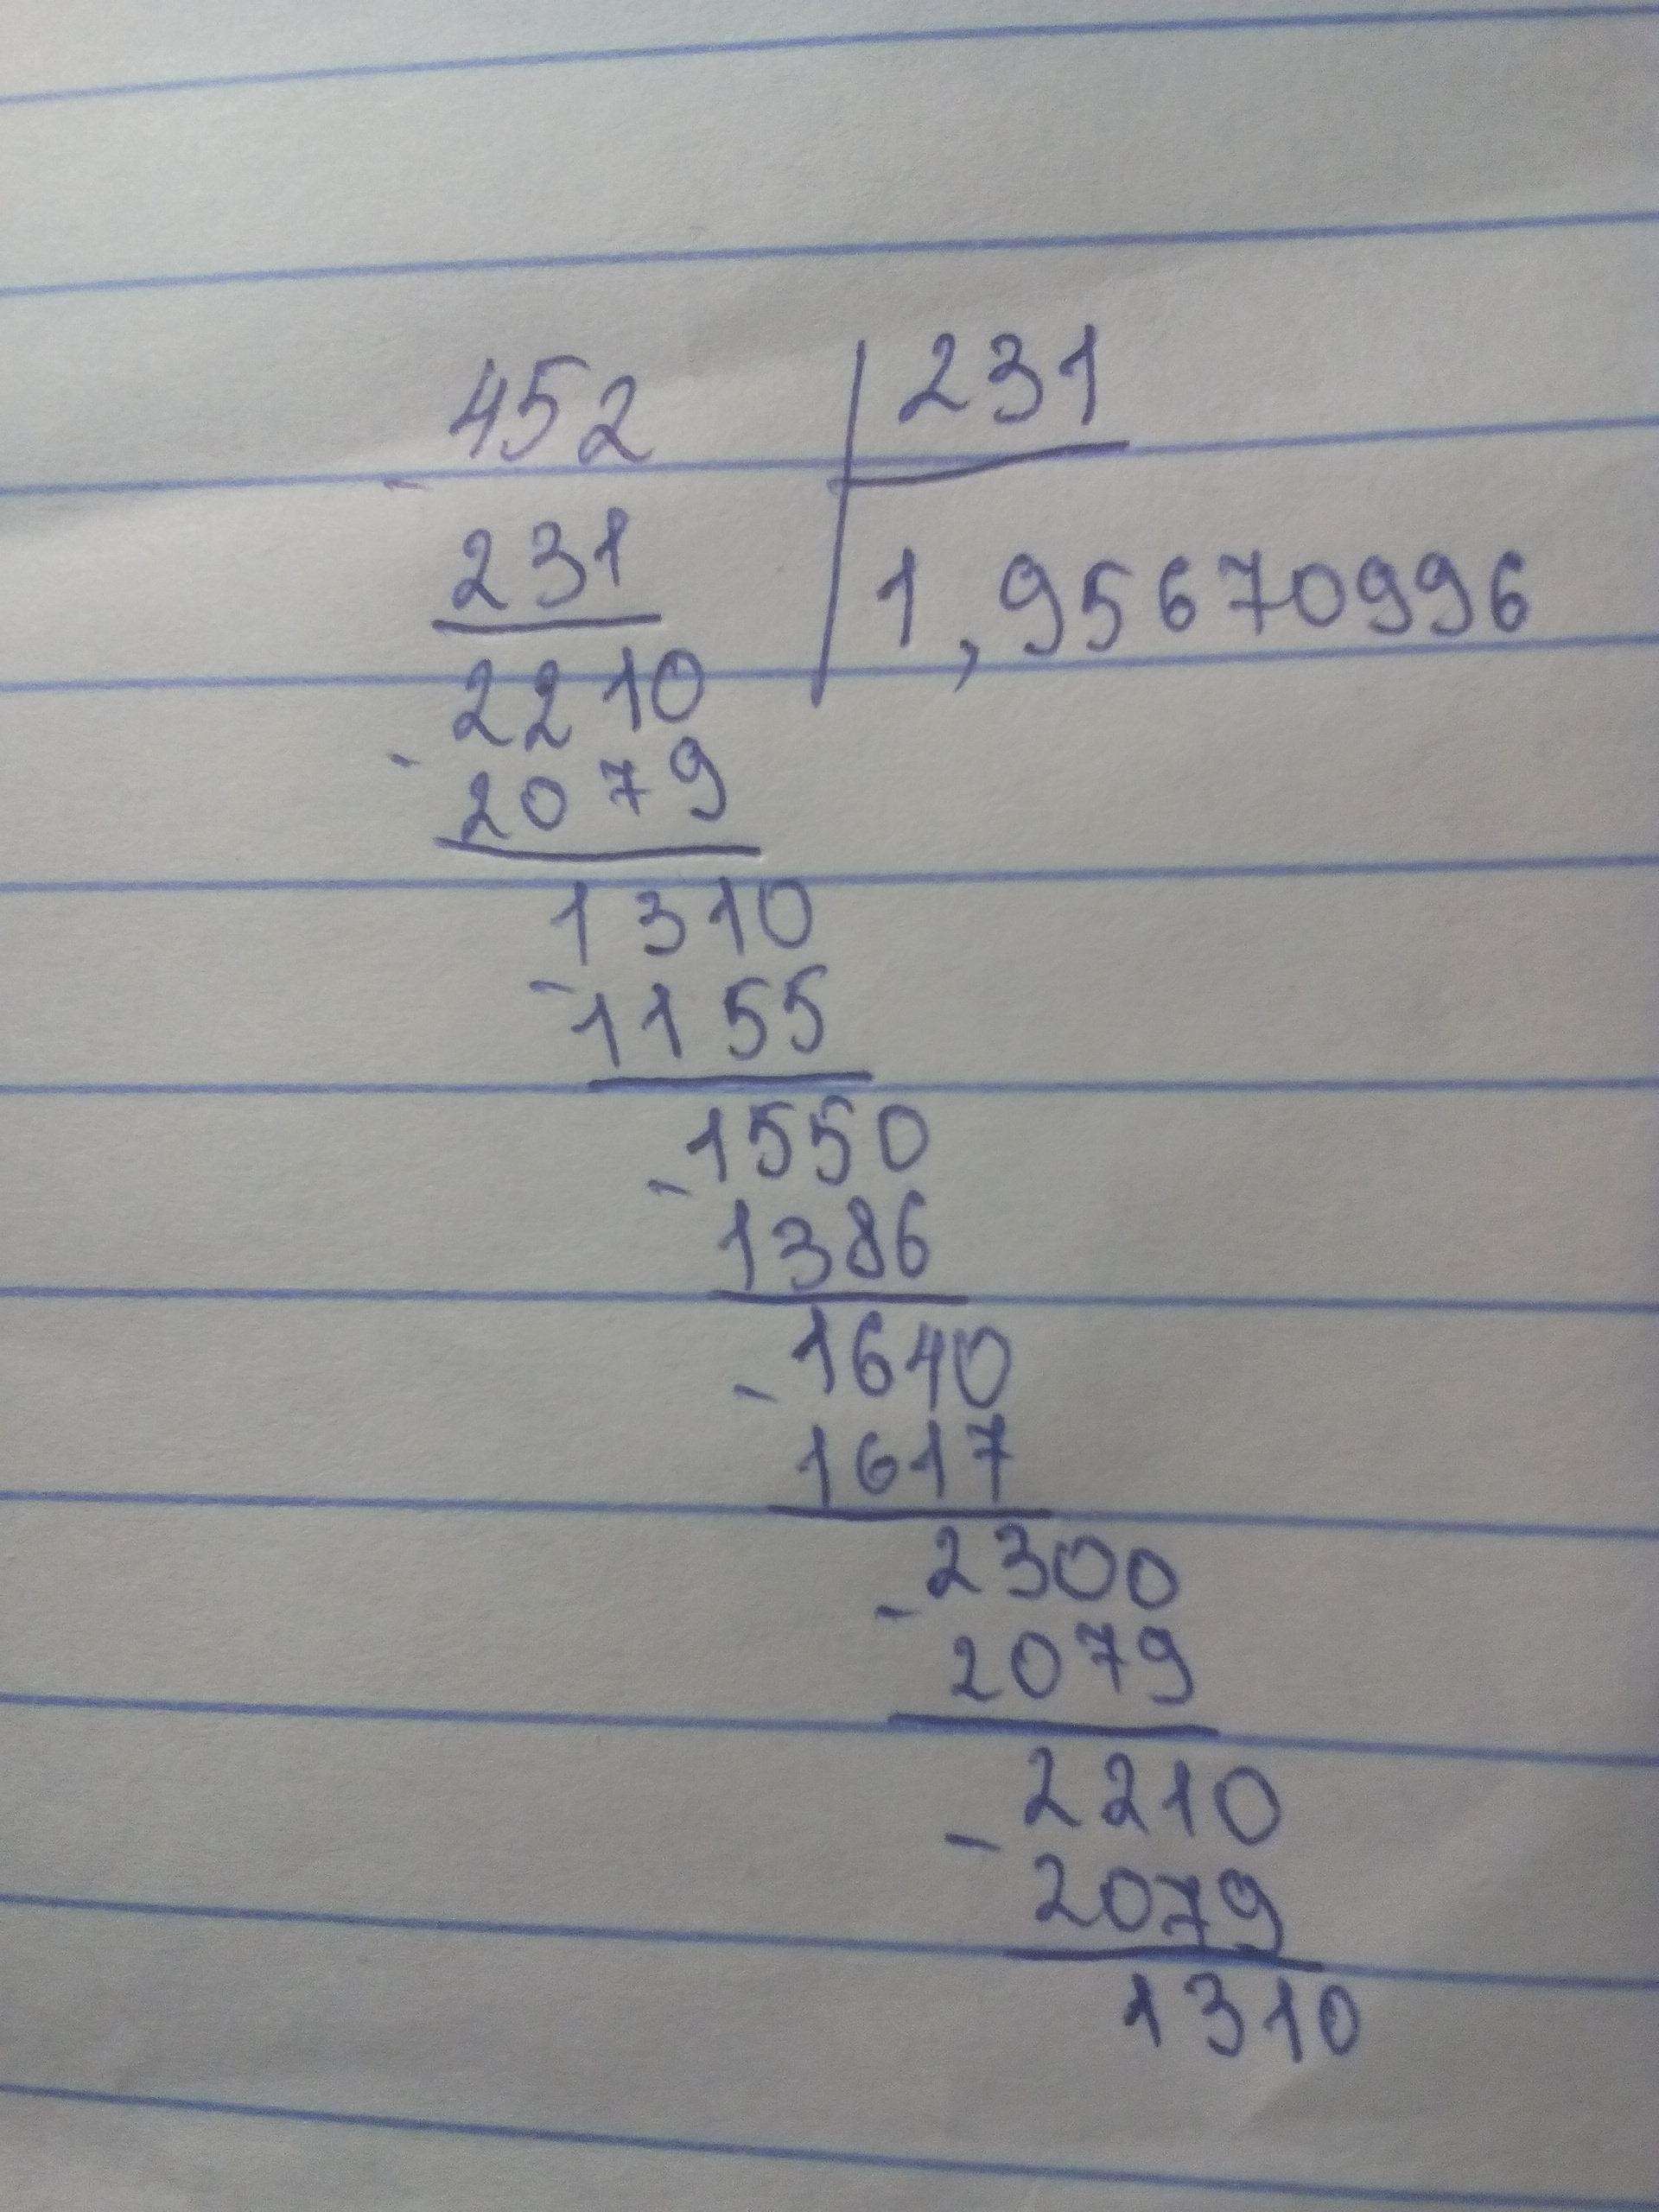 452 231
- 231 1,95670996
2210
- 2079
1310
- 1155
1550
- 1386
1640
- 1617
2300
- 2079
2210
- 2079
1310